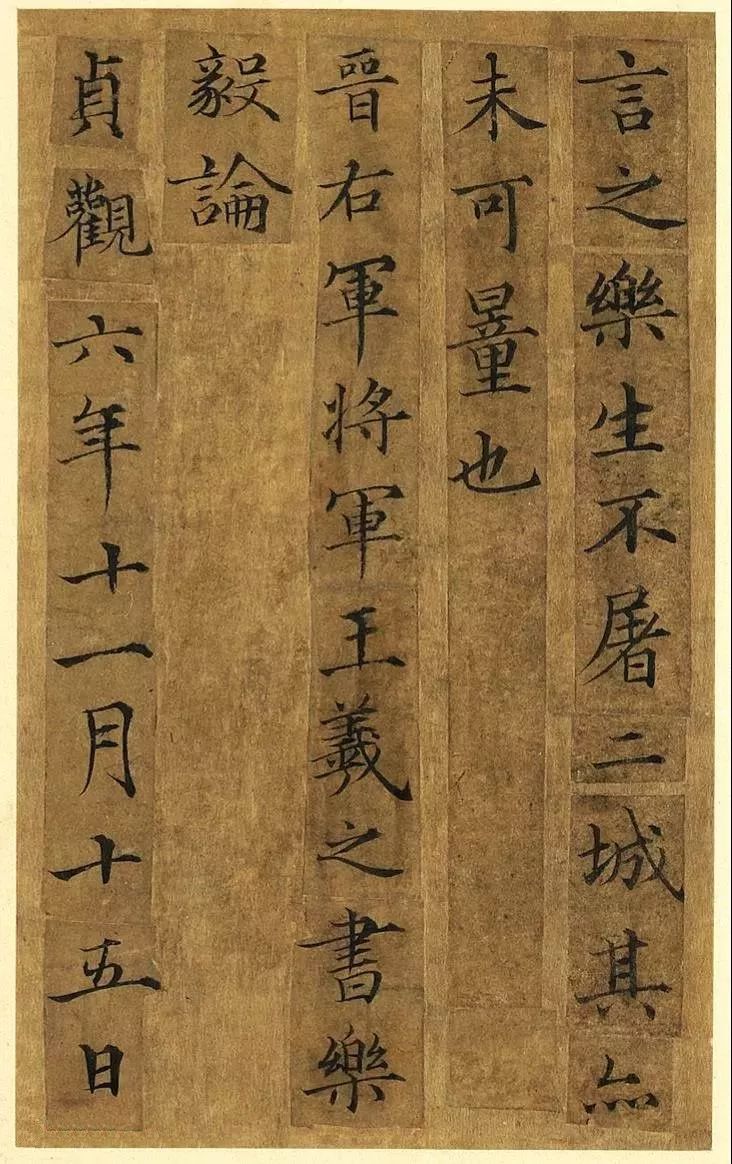 言之樂生不屠二城其亦
未可量也
晉右軍將軍王羲之書樂
毅論
貞觀六年十一月十五日